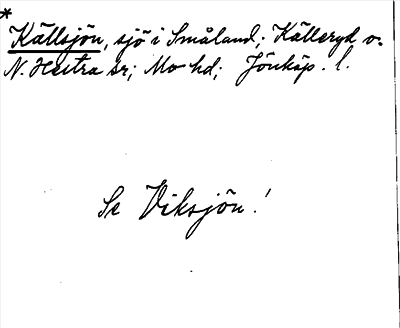 *
Källsjön, sjö i Småland; Källeryd o.
N. Hestra sr; Mo hd; Jönköp. l.
Se Viksjön!